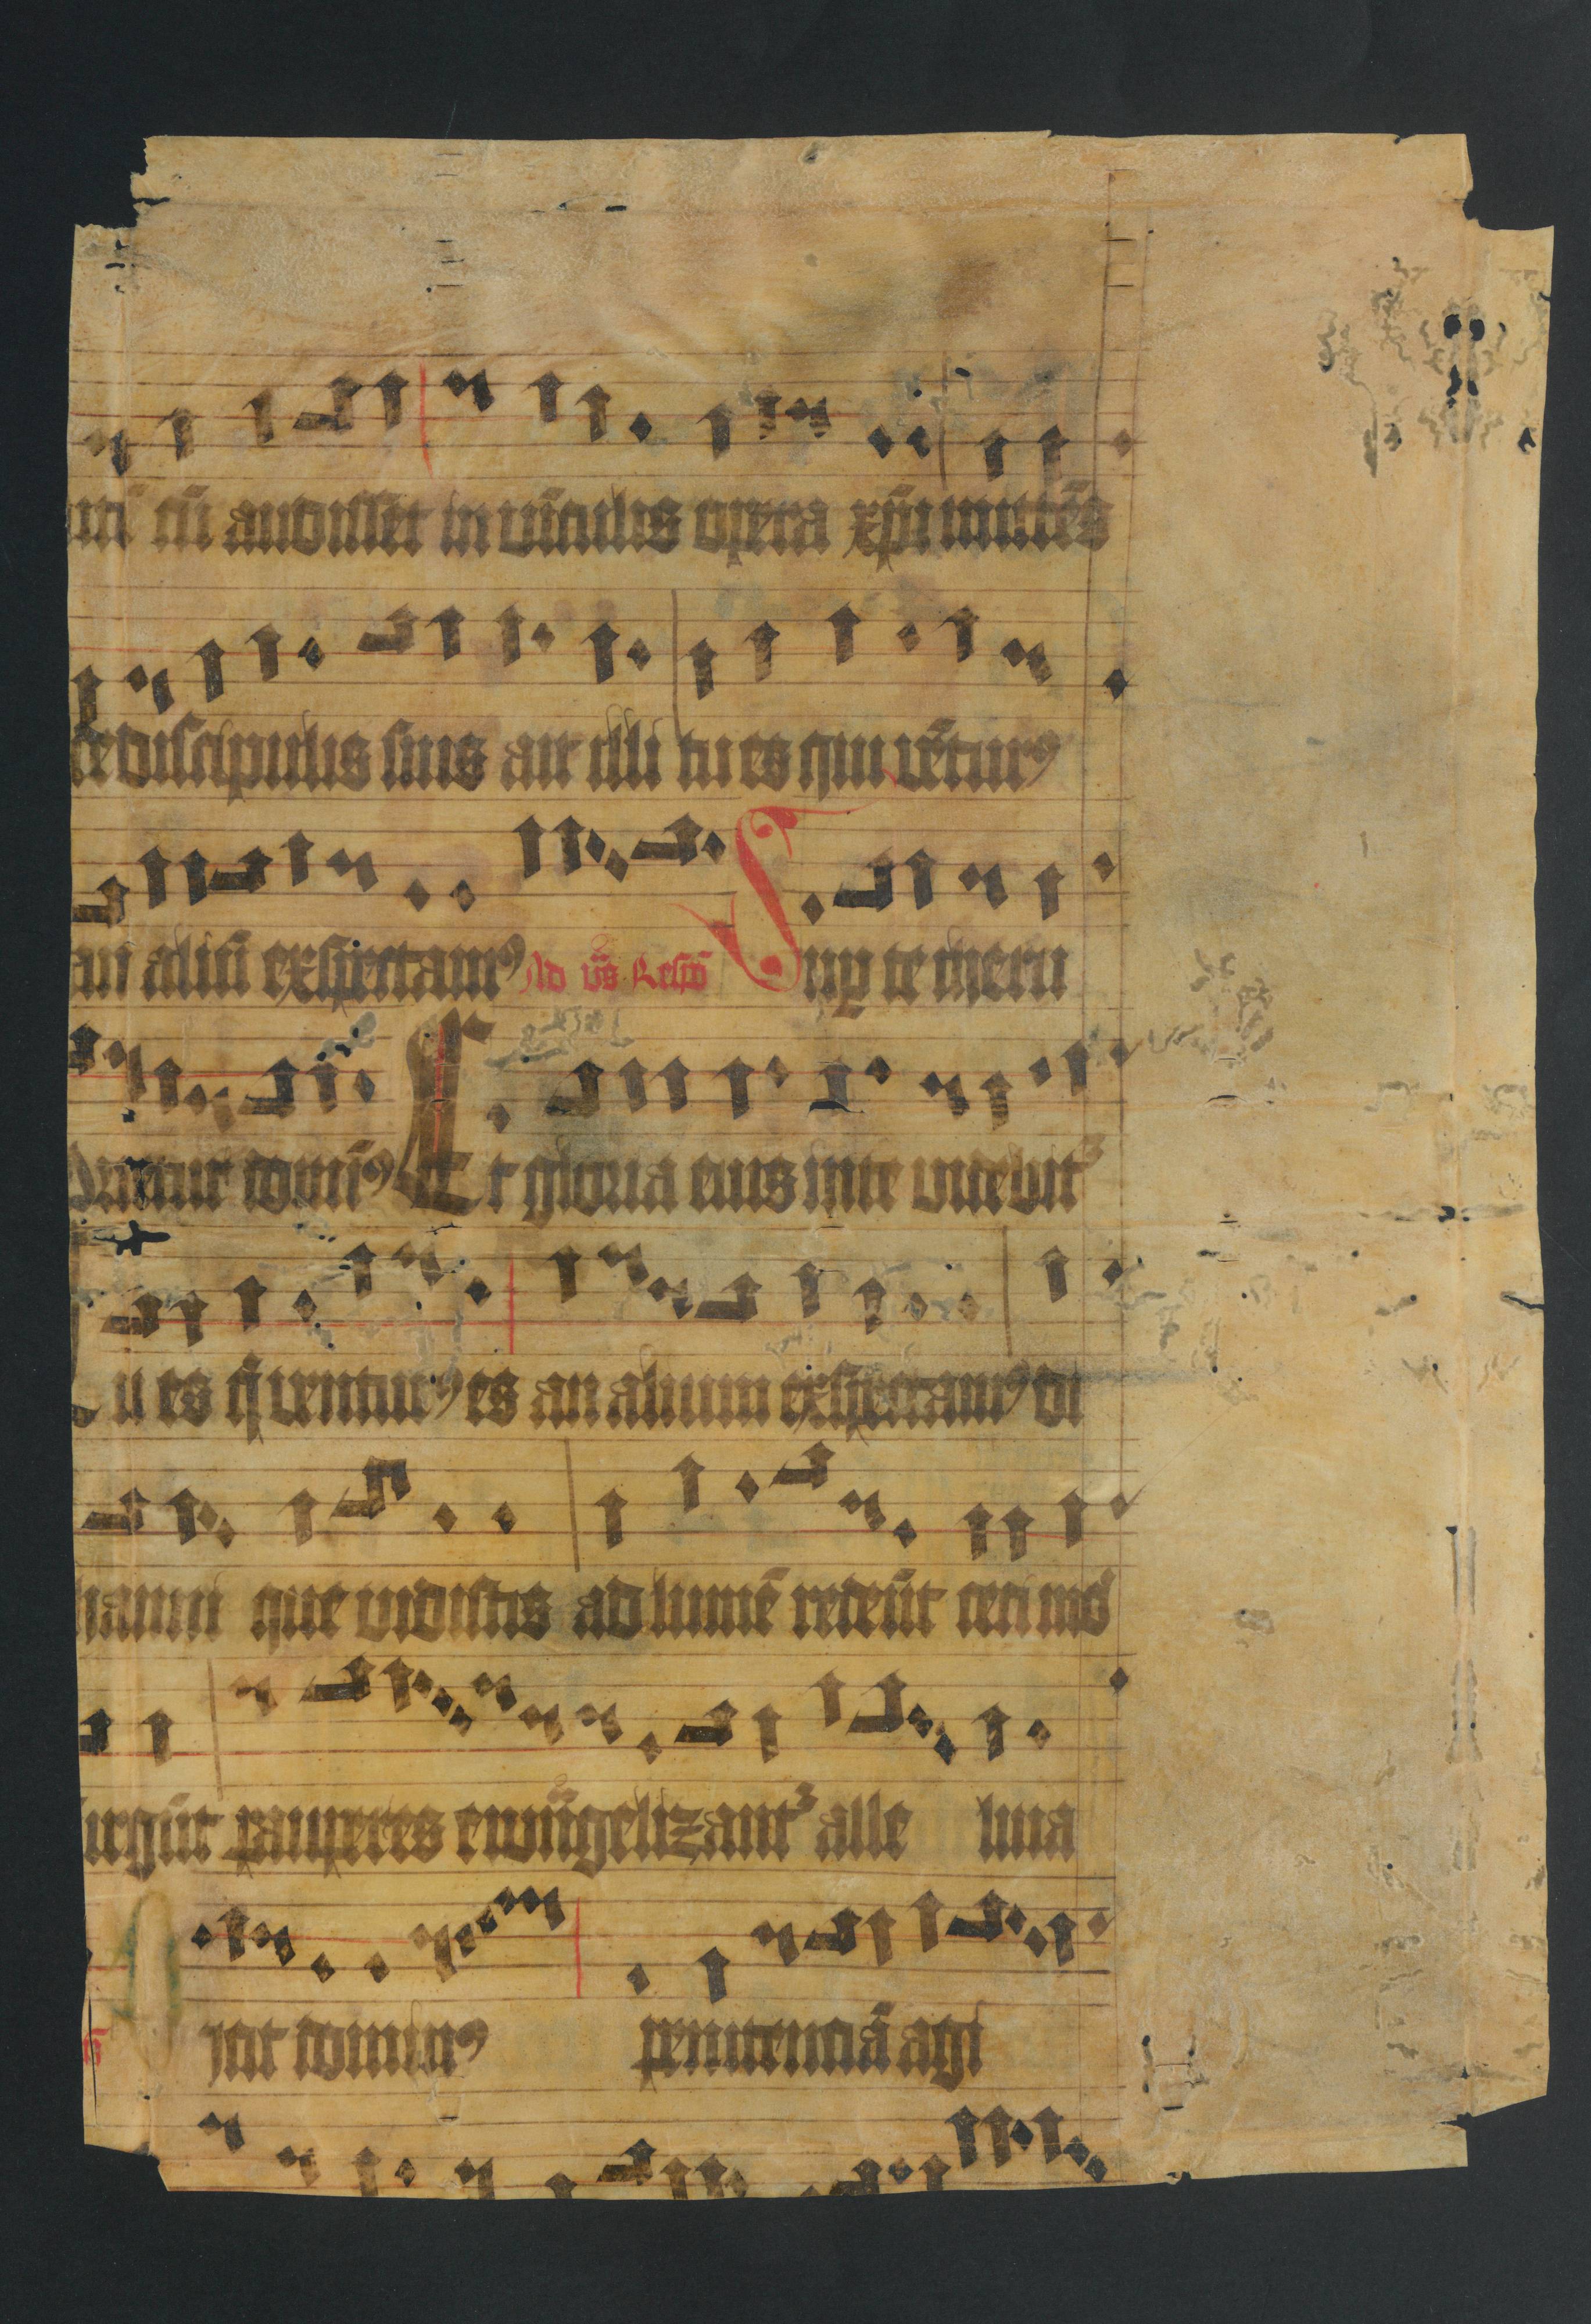 cū audisset in vīculis opera xp̄i mittēs
discipulis suis ait illi tu es qui vētur⁹
an aliū exspectam⁹ Ad v̄s Resp̄ Sup te iheru
orietur domin⁹ Et gloria eius in te videbit᷑
Tu es q̇ ventur⁹ es an alium exspectam⁹ di
hanni que vidistis ad lumē redeūt ceci mo
urgūt pauperes ewāgelizant᷑ alle luia
icit domin⁹ penitenciā agi